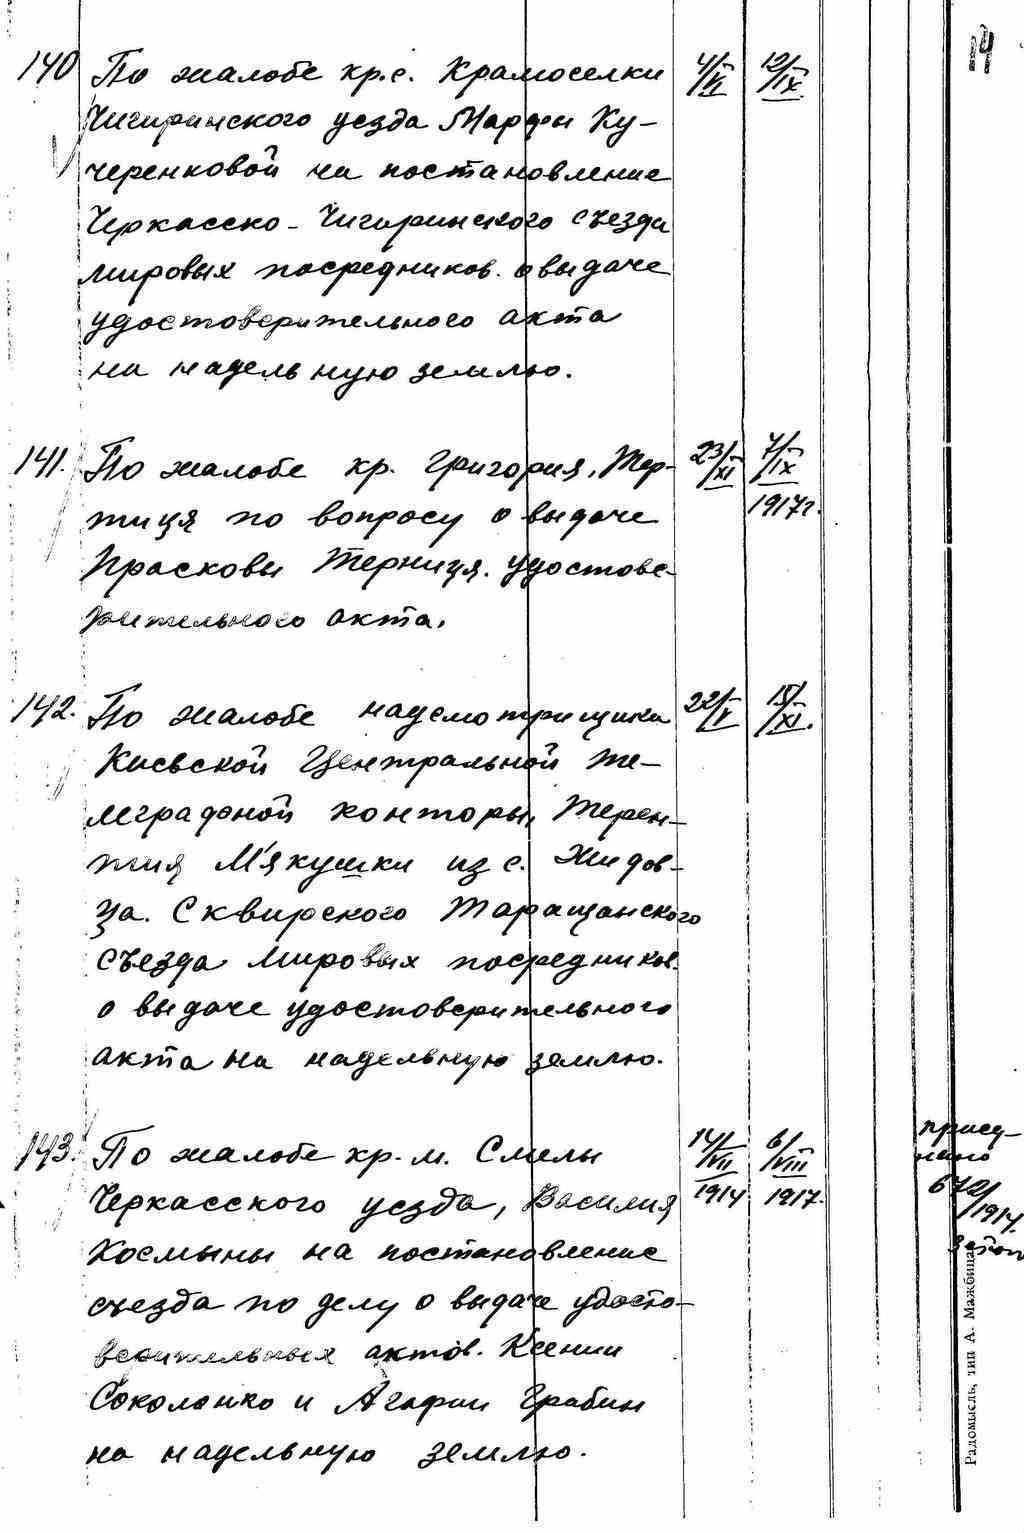 14
140 По жалобе кр.с. Крамоселки 4/VI 12/IX
Чигиринского уезда Марфы Ку-
черенковой на постановление
Черкасско-Чигиринского съезда
мировых посредников о выдаче
удостоверительного акта
на надельную землю.
141. По жалобе кр. Григория Тер- 23/XI 7/IX
тиця по вопросу о выдаче 1917г.
Прасковьи Терниця удостове-
рительного акта.
142. По жалобе надсмотрщика 22/V 15/XI.
Киевской Центральной те-
леграфной конторы, Терен-
тия М'якушки из с. Жидов-
ца. Сквирского Таращанского
съезда мировых посредников
о выдаче удостоверительного
акта на надельную землю.
143. По жалобе кр. м. Смелы 14/VII 6/VIII
Черкасского уезда, Василия 1914 1917.
Космыны на постановление
съезда по делу о выдаче удосто-
верительных актов. Ксении
Соколенко и Агафии Грабин
на надельную землю.
672/1914.
Радомысль, тип А. Мажбица